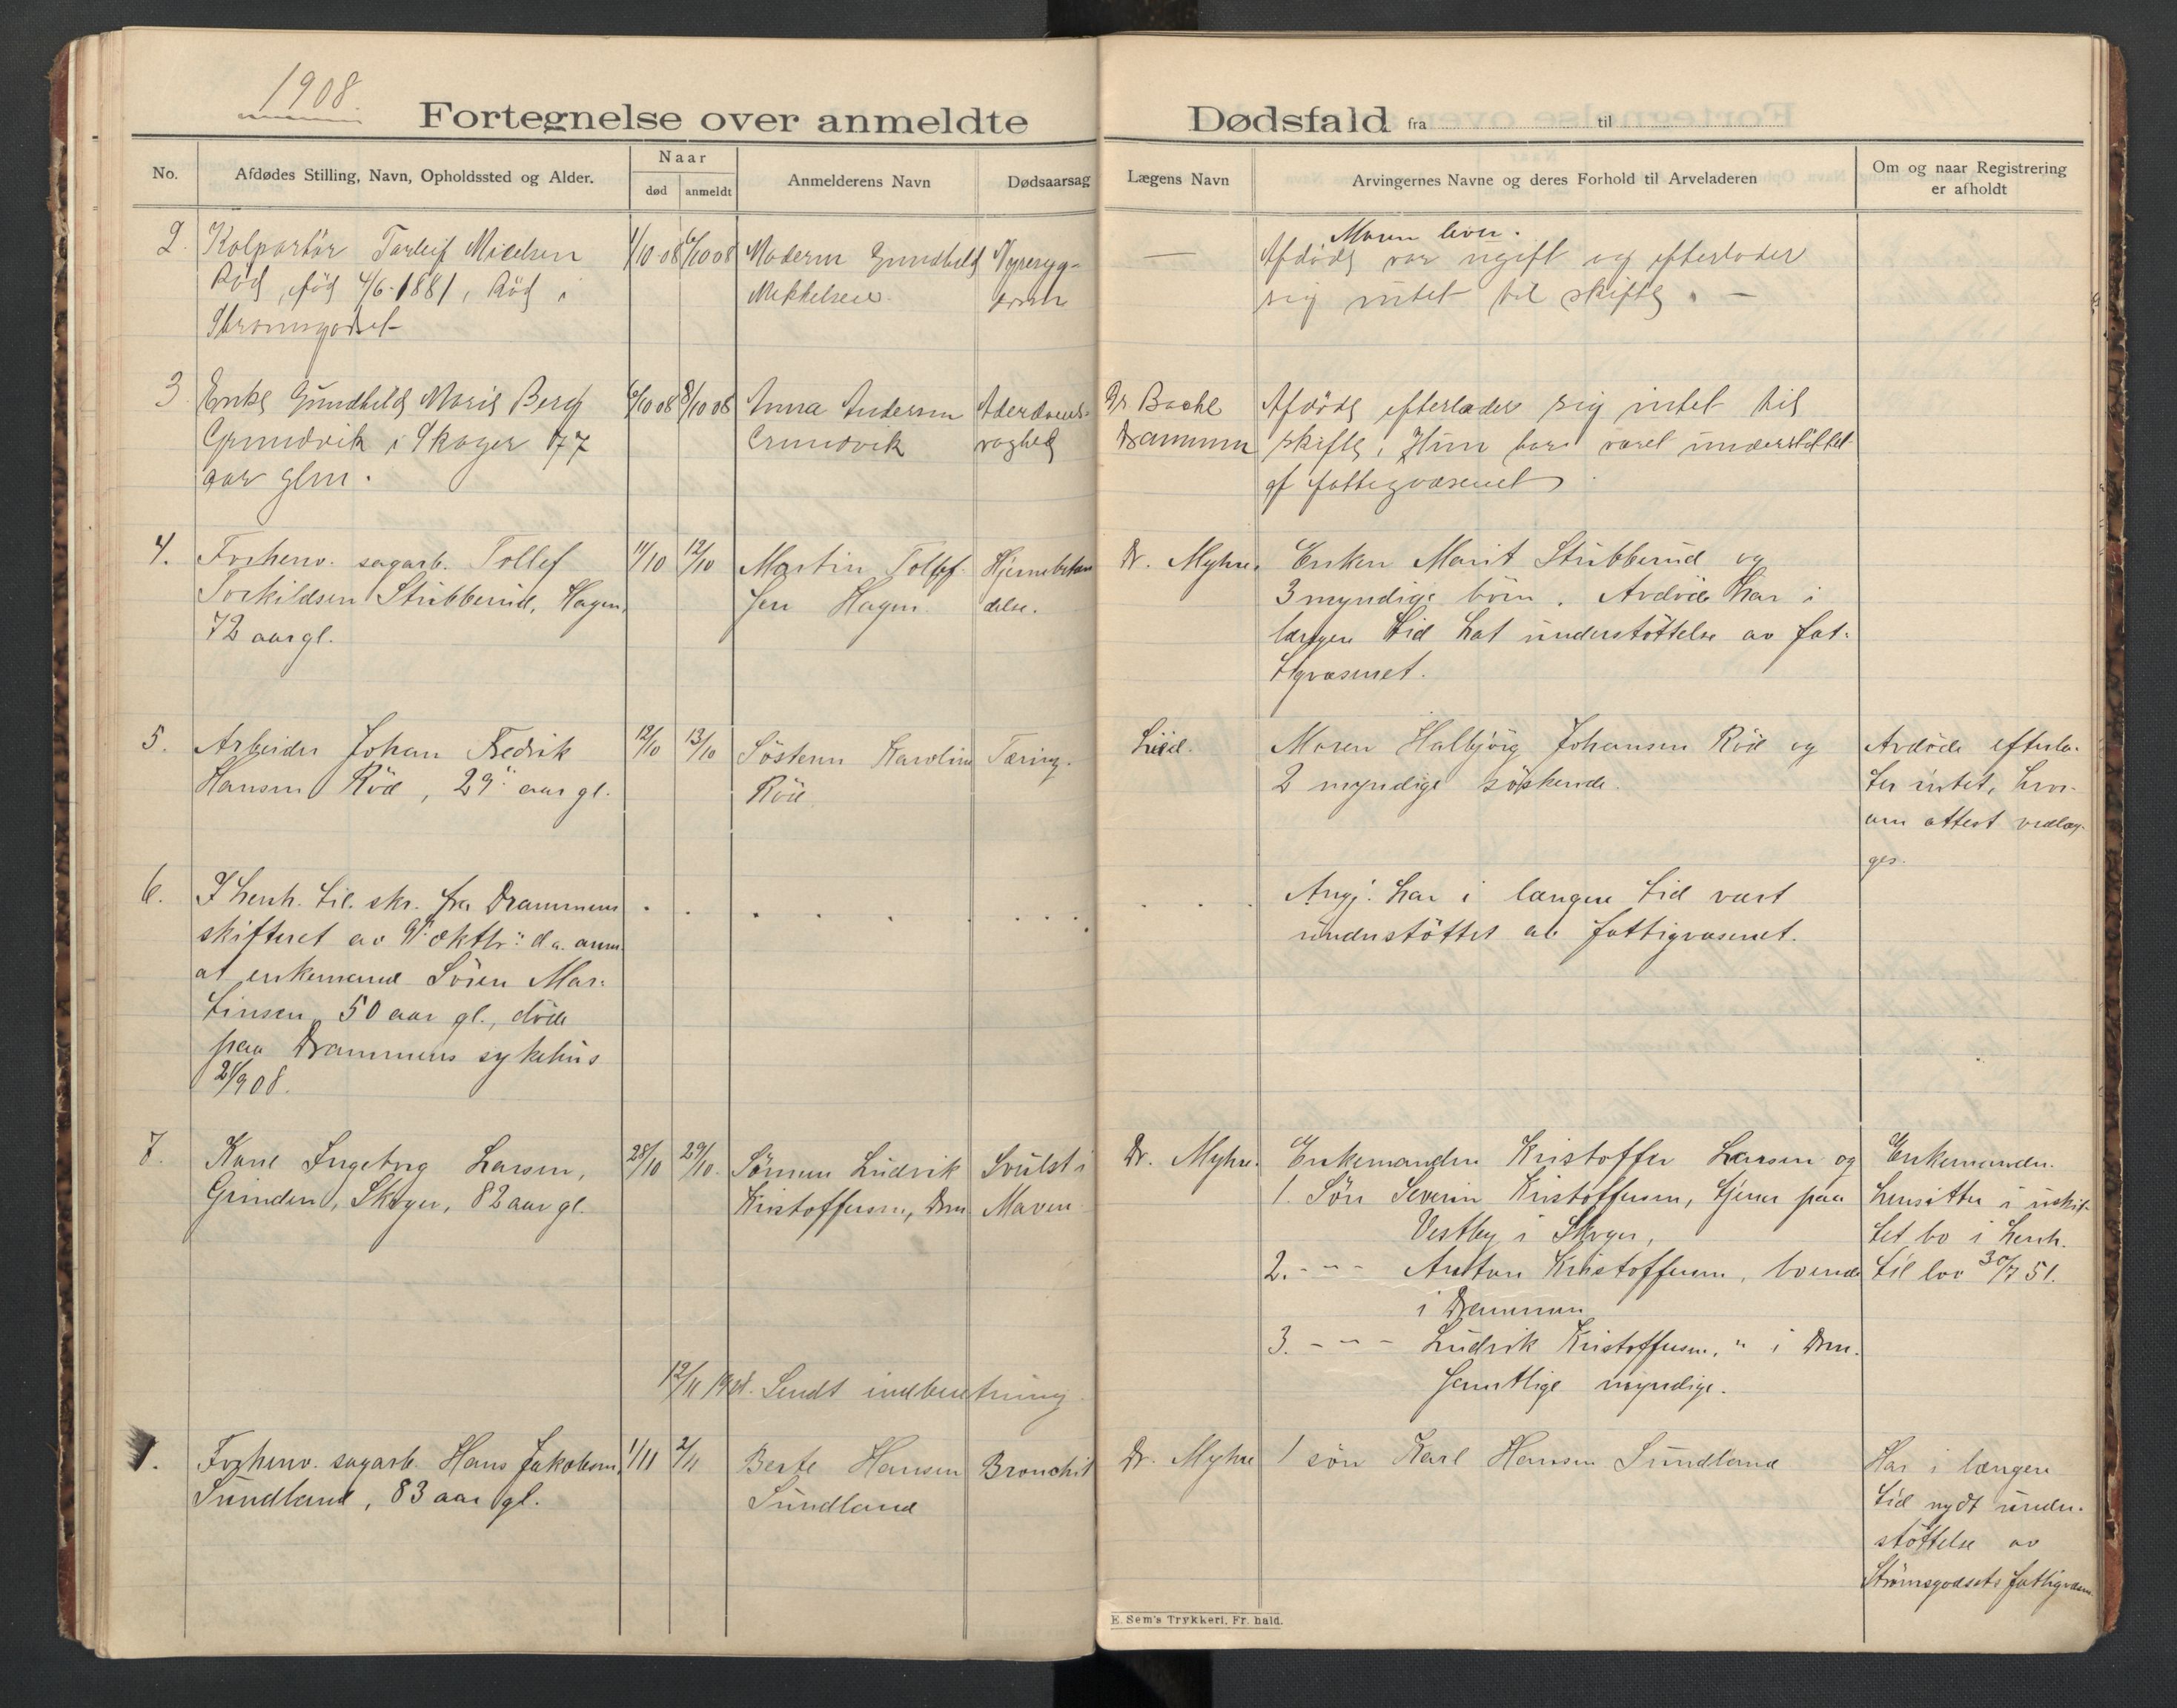 1908.
Fortegnelse over anmeldte Dødsfald fra til
No.
Afdødes Stilling, Navn, Opholdssted og Alder.
Naar
død
anmeldt
Anmelderens Navn
Dødsaarsag
Lægens Navn
Arvingernes Navne og deres Forhold til Arveladeren
Om og naar Registrering
er afholdt
2. Kolportör Torleif Mikelsen
Röd, föd 4/6-1881, Röd i
Strömsgodset
1/10 08
6/10 08
Moderen Gundhild
Mikkelsen
Nyresyg-
dom
—
Moren lever.
Afdöde var ugift og efterlader
sig intet til skifte. —
3 Enke Gundhild Marie Berg
Grundvik i Skoger 77
aar glm.
6/10 08
8/10 08
Anna Andersen
Grundvik
Alderdoms-
svaghed
Dr Bache
Drammen
Afdöde efterlader sig intet til
skifte. Hun har været understöttet
af fattigvæsenet
4. Forhenv. sagarb. Tollef
Torkildsen Stubberud, Hagen,
72 aar gl.
11/10
12/10
Martin Tollef-
sen Hagen.
Hjernebetæn
delse.
Dr. Myhre.
Enken Marit Stubberud og
3 myndige börn. Avdöde har i
længere tid hat understöttelse av fat-
tigvæsenet.
5. Arbeider Johan Fredrik
Hansen Röd, 29 aar gl.
12/10
13/10
Söstern Karoline
Röd
Tæring.
Lund.
Moren Halbjörg Johansen Röd og
2 myndige söskende.
Avdöde efterla-
ter intet, hvor-
om attest vedlæg-
ges.
6. I henh. til. skr. fra Drammens
skifteret av 9. oktbr. d.a. anm.
at enkemand Sören Mar-
tinsen, 50 aar gl., döde
paa Drammens sykehus
21/9 08.
Angj. har i længere tid vært
understöttet av fattigvæsenet.
7. Kone Ingeborg Larsen,
Grinden, Skoger, 82 aar gl.
28/10
29/10.
Sönnen Ludvik
Kristoffersen, Drm
Svulst i
Maven
Dr. Myhre.
Enkemanden Kristoffer Larsen og
1. Sön Severin Kristoffersen, tjener paa
Vestby i Skoger,
2. - " - Anton Kristoffersen, boende
i Drammen
3. - " - Ludvik Kristoffersen, " i Drm.
Samtlige myndige.
Enkemanden
hensitter i uskif-
tet bo i henh.
til lov 30/7 51.
12/11 1908. Sendt indberetning
1. Forhenv. sagarb. Hans Jakobsen
Sundland, 83 aar gl.
1/11
2/11
Berte Hansen
Sundland
Bronchit
Dr. Myhre
1 sön Karl Hansen Sundland
Har i længere
tid nydt under-
støttelse av
Strömsgodsets fattigvæsen.
E. Sem's Trykkeri, Fr. hald.